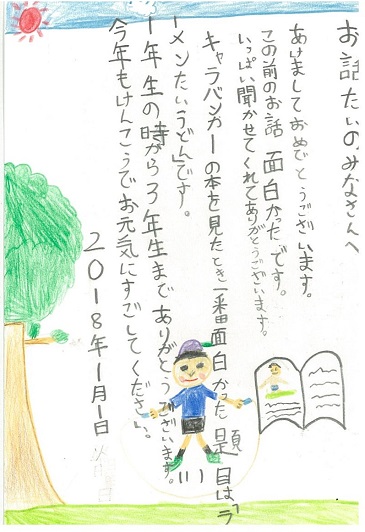 お話たいのみなさんへ
あけましておめでとうございます。
この前のお話面白かったです。
いっぱい聞かせてくれてありがとうございます。
キャラバンカーの本を見たとき一番面白かった題目は「ラ
ーメンたいうどん」です。
1年生の時から3年生までありがとうございます。
今年もけんこうでお元気にすごしてください。
2018年1月1日